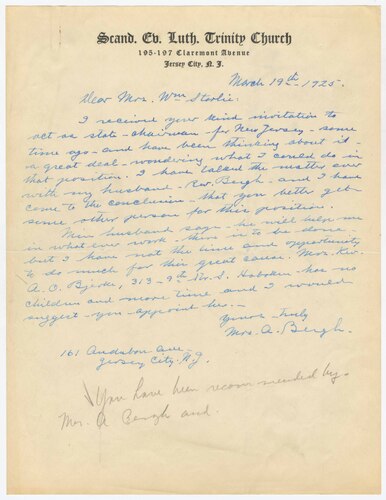 Scand. Ev. Luth. Trinity Church
195-197 Claremont Avenue
Jersey City, N. J.
March 19th - 1925.
Dear Mrs. Wm Storlie:
I receive your kind invitation to
act as state - chairman - for New Jersey - some
time ago - and have been thinking about it -
a great deal - wondering what I could do in
that position. I have talked the matter over
with my husband - Rev. Bergh - and I have
come to the conclusion - that you better get -
some other person for this position.
Min husband says - he will help me
in what ever work - there is to be done -
but I have not the time and opportunity
to do much for this great cause. Mrs. Rev.
A. O. Bjerke, 313 - 9th Str. S. Hoboken has no
children and more time - and I would
suggest - you appoint her. -
Yours - truly
Mrs. A. Bergh.
161 Audubon Ave -
Jersey City. N.J.
You have been recommended by
Mrs. A Bergh and